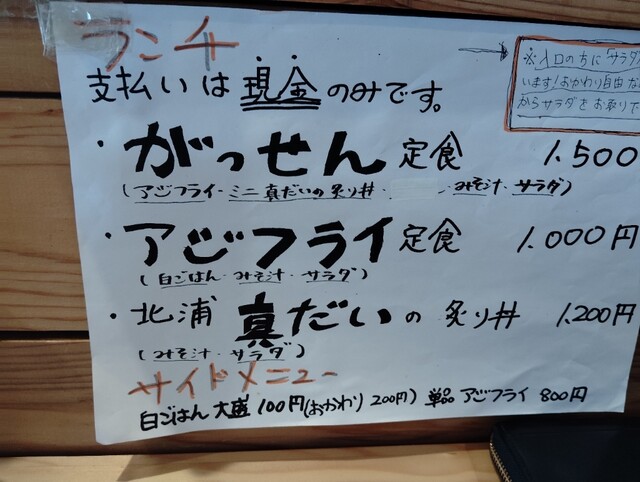 ランチ
支払いは現金のみです。
※入口のちに「サラダ
います!おかわり自由な
からサラダをお取りて
・がっせん定食 1.500
(アジフライ・ミニ真だいの炙り丼・ みそ汁・サラダ)
・アジフライ定食 1.000円
(白ごはん・みそ汁・サラダ)
・北浦真だいの炙り丼 1.200円
(みそ汁・サラダ)
サイドメニュー
白ごはん大盛100円(おかわり200円) 単品アジフライ 800円